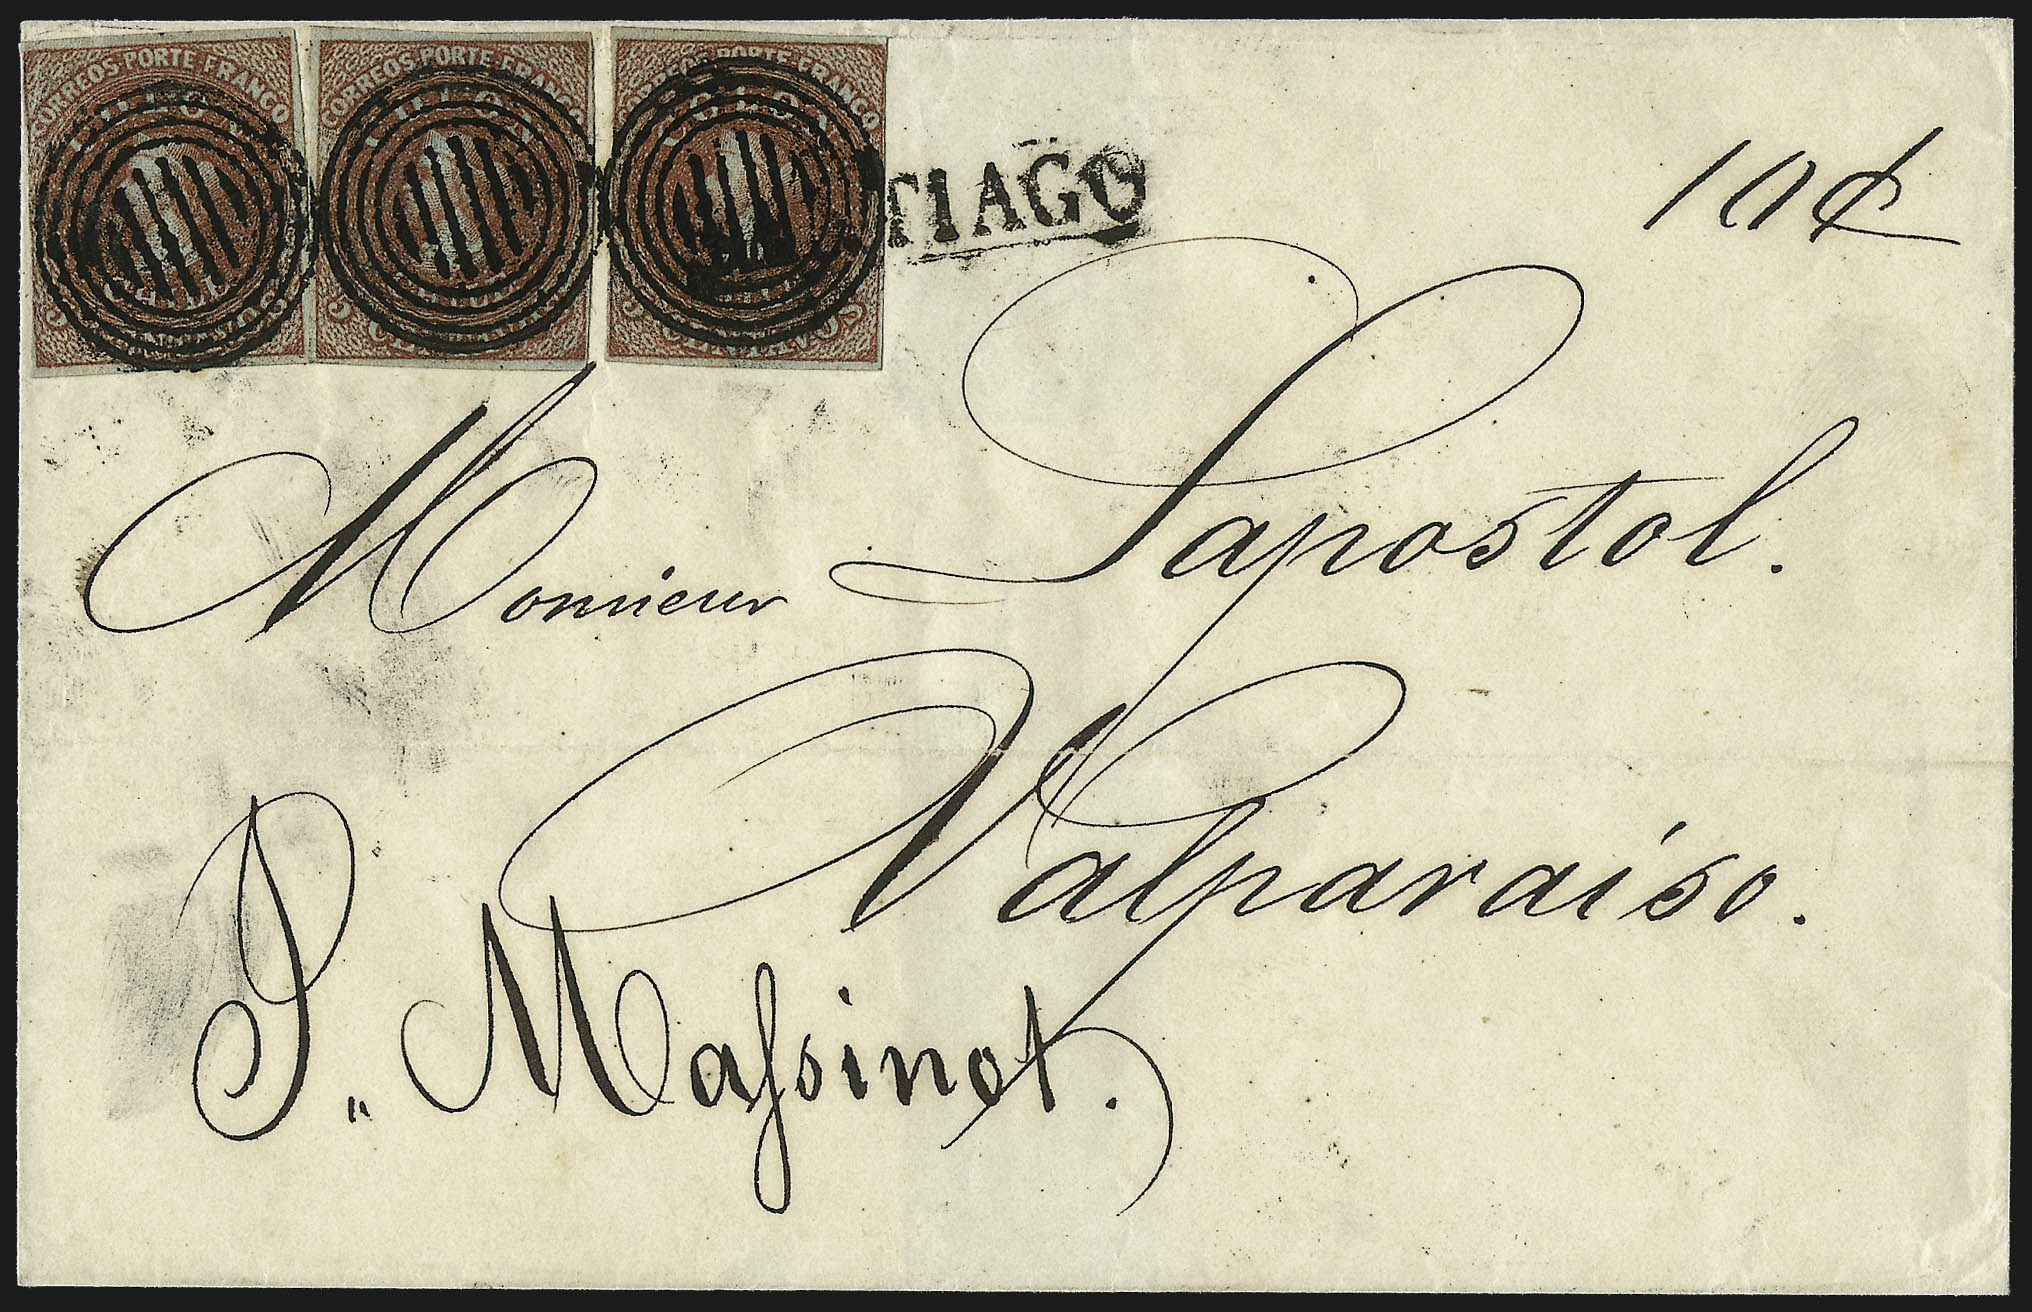 CORREOS PORTE FRANCO
CORREOS PORTE FRANCO
CORREOS PORTE FRANCO
COLON
TIAGO
10¢
5 CENTAVOS
Monsieur Lapostol.
Valparaiso.
P. Massinot.